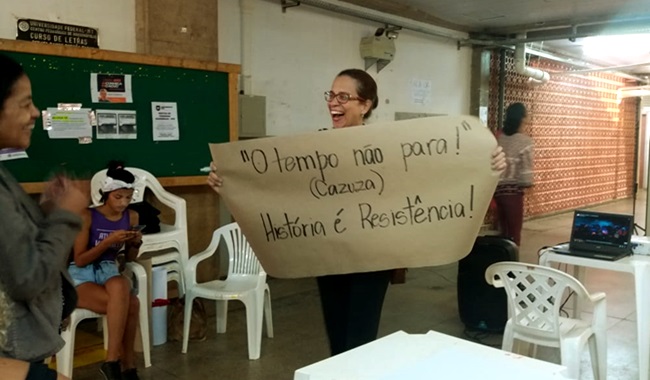 UNIVERSIDADE FEDERAL
CURSO DE LETRAS
"O tempo não para!"
(Cazuza)
História é Resistência!